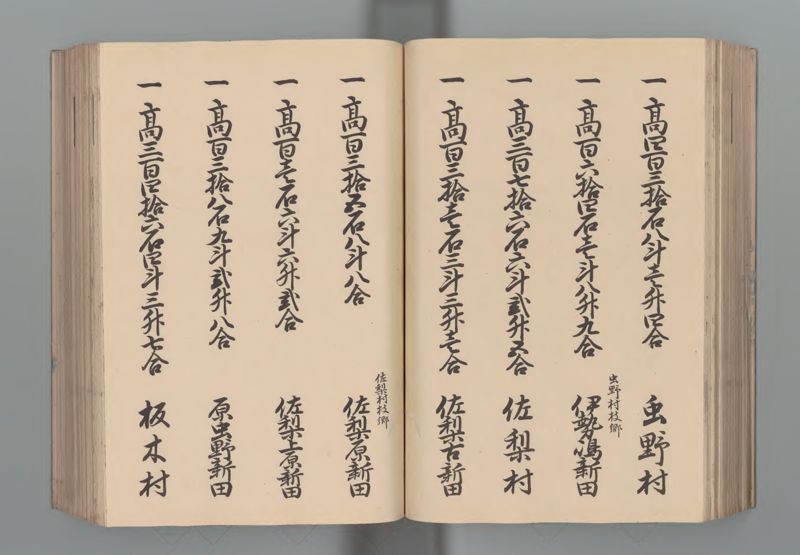 一高四百三拾石八斗壱升四合 虫野村
虫野村枝郷
一高百六拾四石壱斗八升九合 伊勢嶋新田
一高三百七拾六石六斗弐升五合 佐梨村
一高百三拾壱石三斗三升壱合 佐梨古新田
佐梨村枝郷
一高百三拾五石八斗八合 佐梨原新田
一高百壱石六斗六升弐合 佐梨上原新田
一高百三拾八石九斗弐升八合 原虫野新田
一高三百四拾六石四斗三升七合 板木村